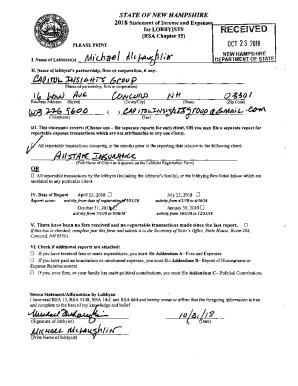 STATE OF NEW HAMPSHIRE
2018 Statement of Income and Expenses
for LOBBYISTS
(RSA Chapter 15)
RECEIVED
OCT 23 2018
NEW HAMPSHIRE
DEPARTMENT OF STATE
PLEASE PRINT
I. Name of Lobbyist(s) Michael McLaughlin
II. Name of lobbyist's partnership, firm or corporation, if any:
CAPITOL INSIGHTS GROUP
(Name of partnership, firm or corporation)
CONCORD NH 03301
Business Address (Street) (Town/City) (State) (Zip Code)
603 226 5600
(Telephone) (Fax)
III. This statement covers: (Choose one - file separate reports for each client, OR you may file a separate report for
reportable expenditure transactions which are not attributable to any one client).
All reportable transactions occurring in the months prior to the reporting date relative to the following client:
ALLSTATE INSURANCE
(Full Name of Client as it appears on the Lobbyist Registration Form)
OR
All reportable transactions by the lobbyist (including the lobbyist's family), or the lobbying firm listed below which are
unrelated to any particular client.
IV. Date of Report April 25, 2018 July 25, 2018
Reports cover: activity from date of registration to 3/31/18 activity from 4/1/18 to 6/30/18
October 31, 2018 January 30, 2019
activity from 7/1/18 to 9/30/18 activity from 10/1/18 to 12/31/18
V. There have been no fees received and no reportable transactions made since the last report.
If this box is checked, complete just this form and submit to the Secretary of State's Office, State House, Room 204,
Concord, NH 03301.
VI. Check if additional reports are attached:
If you have received fees or made expenditures, you must file Addendum A- Fees and Expenses
If you have paid an honorarium or reimbursed expenses, you must file Addendum B- Report of Honorariums or
Expense Reimbursement
If you, your firm, or your family has made political contributions, you must file Addendum C- Political Contributions
Sworn Statement/Affirmation by Lobbyist
I have read RSA 15, RSA 15-B, RSA 14-C and RSA 664 and hereby swear or affirm that the foregoing information is true
and complete to the best of my knowledge and belief.
10/21/18
(Signature of lobbyist) (Date)
MICHAEL McLaughlin
(Print Name of lobbyist)